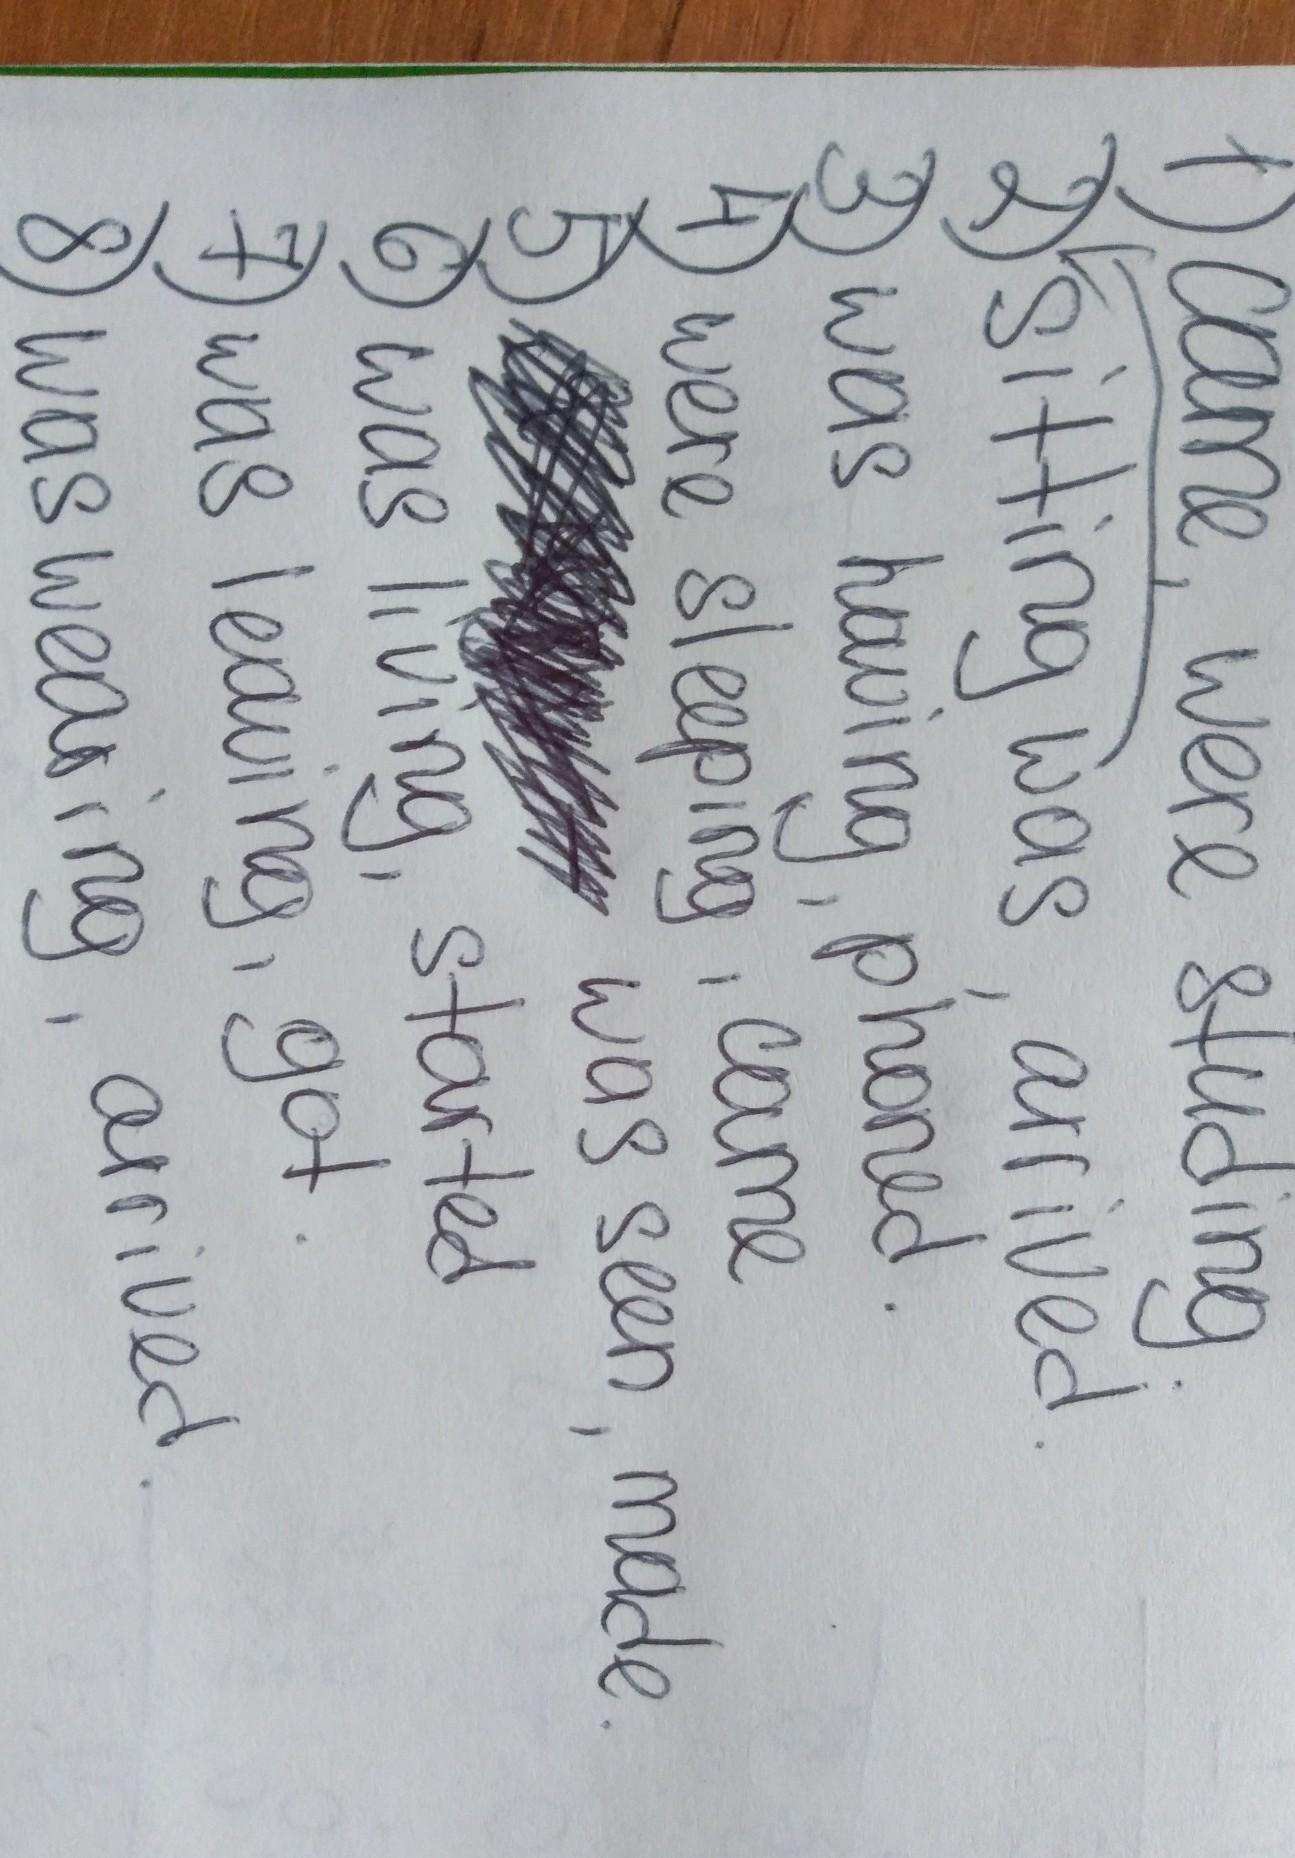 1) came, were studing.
2) sitting was, arrived.
3) was having, phoned.
4) were sleeping, came
5) was seen, made.
6) was living, started
7) was leaving, got.
8) was wearing, arrived.